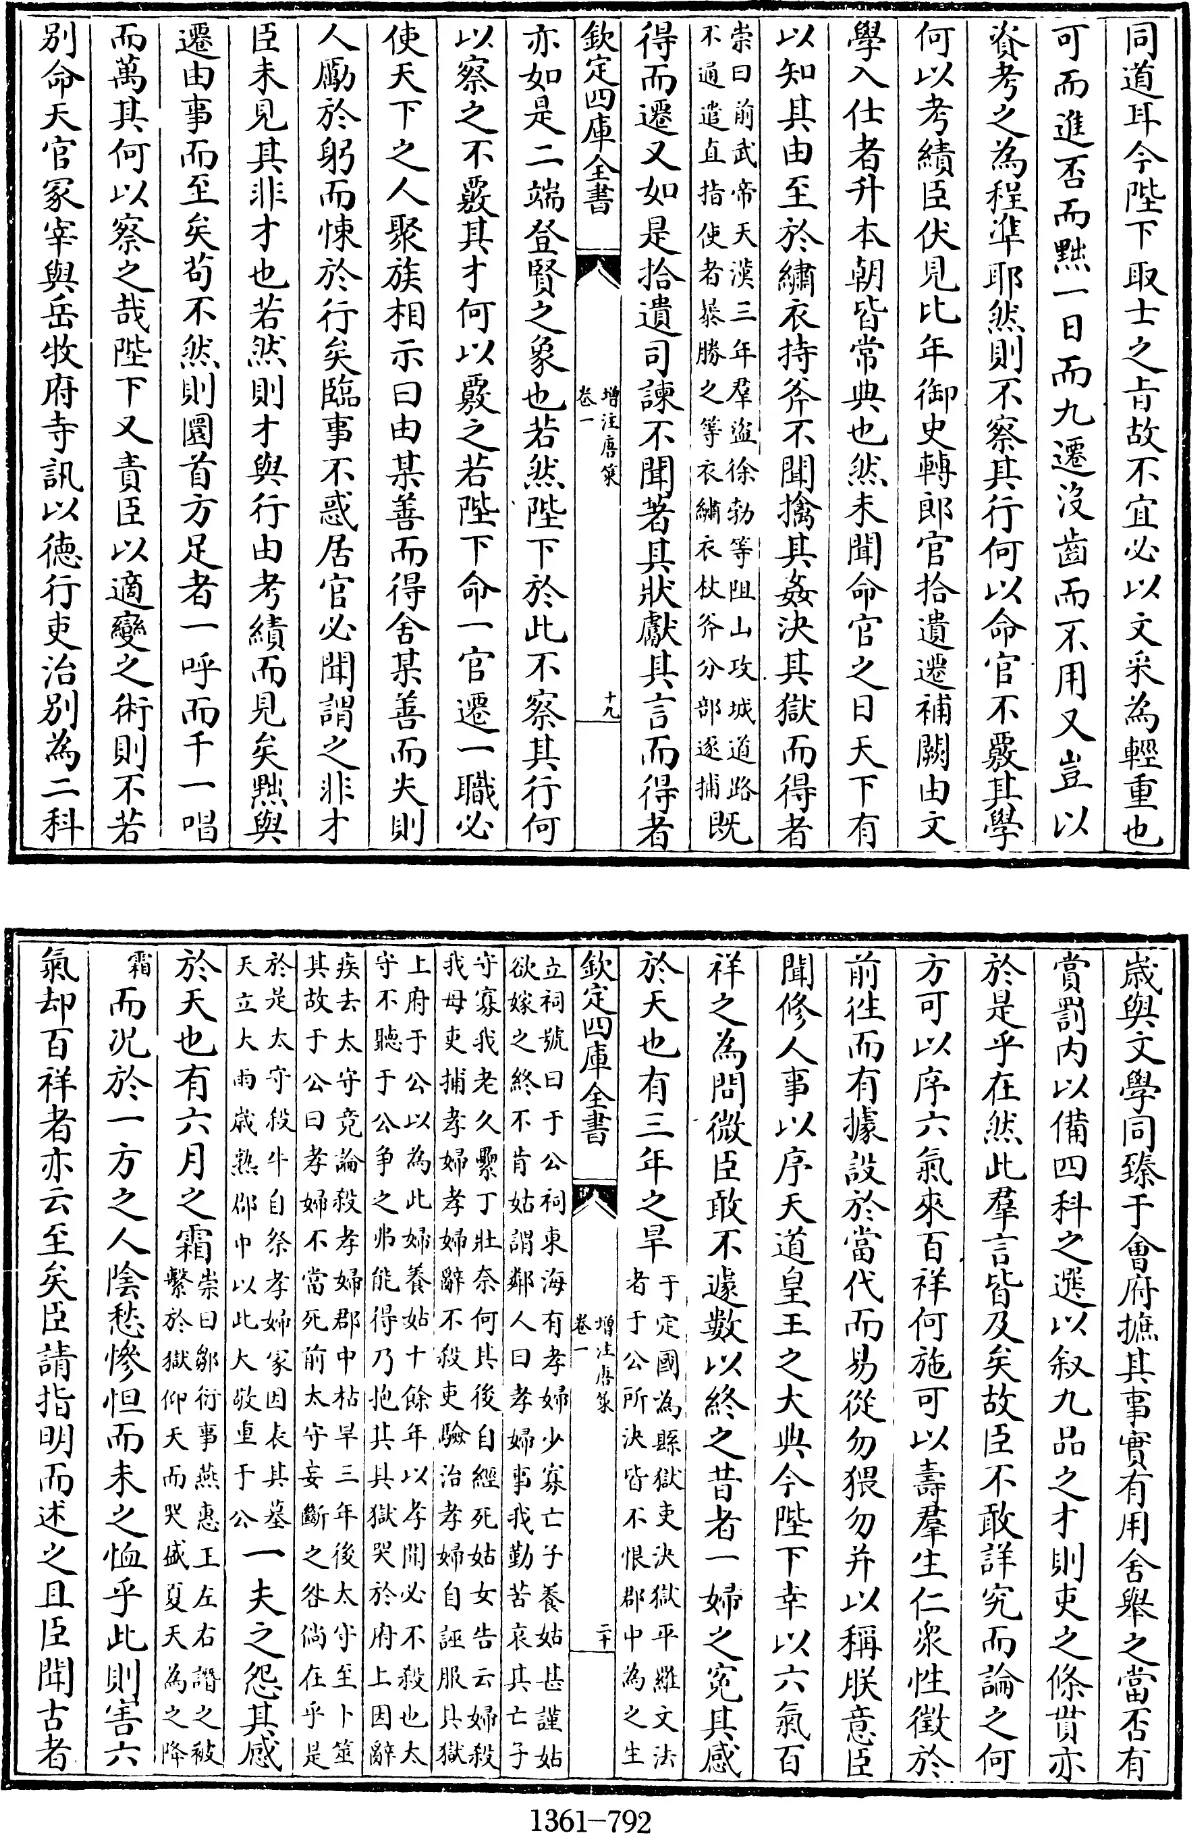 同道耳今陛下取士之肯故不宜必以文采為輕重也
可而進否而黜一日而九遷沒齒而不用又豈以
資考之為程準耶然則不察其行何以命官不覈其學
何以考績臣伏見比年御史轉郎官拾遺遷補闕由文
學入仕者升本朝皆常典也然未聞命官之日天下有
以知其由至於繡衣持斧不聞擒其姦決其獄而得者
崇曰前武帝天漢三年羣盜徐勃等阻山攻城道路
不通遣直指使者暴勝之等衣繡衣杖斧分部逐捕
既
得而遷又如是拾遺司諫不聞著其狀獻其言而得者
欽定四庫全書
增注唐策
卷一
十九
亦如是二端登賢之象也若然陛下於此不察其行何
以察之不覈其才何以覈之若陛下命一官遷一職必
使天下之人聚族相示曰由某善而得舍某善而失則
人勵於躬而悚於行矣臨事不惑居官必聞謂之非才
臣未見其非才也若然則才與行由考績而見矣黜與
遷由事而至矣苟不然則圓首方足者一呼而千一唱
而萬其何以察之哉陛下又責臣以適變之術則不若
別命天官冢宰與岳牧府寺訊以德行吏治別為二科
歲與文學同臻于會府摭其事實有用舍舉之當否有
賞罰內以備四科之選以叙九品之才則吏之條貫亦
於是乎在然此羣言皆及矣故臣不敢詳究而論之何
方可以序六氣來百祥何施可以壽羣生仁衆性徵於
前徃而有據設於當代而易從勿猥勿并以稱朕意臣
聞修人事以序天道皇王之大典今陛下幸以六氣百
祥之為問微臣敢不遽數以終之昔者一婦之寃其感
於天也有三年之旱
于定國為縣獄吏決獄平羅文法
者于公所決皆不恨郡中為之生
欽定四庫全書
增注唐策
卷一
二十
立祠號曰于公祠東海有孝婦少寡亡子養姑甚謹姑
欲嫁之終不肯姑謂鄰人曰孝婦事我勤苦哀其亡子
守寡我老久累丁壯奈何其後自經死姑女告云婦殺
我母吏捕孝婦孝婦辭不殺吏驗治孝婦自誣服具獄
上府于公以為此婦養姑十餘年以孝聞必不殺也太
守不聽于公争之弗能得乃抱其具獄哭於府上因辭
疾去太守竟論殺孝婦郡中枯旱三年後太守至卜筮
其故于公曰孝婦不當死前太守妄斷之咎倘在乎是
於是太守殺牛自祭孝婦冢因表其墓
天立大雨歲熟郡中以此大敬重于公
一夫之怨其感
於天也有六月之霜
崇曰鄒衍事燕惠王左右譖之被
繫於獄仰天而哭盛夏天為之降
霜
而況於一方之人陰愁慘怛而未之恤乎此則害六
氣却百祥者亦云至矣臣請指明而述之且臣聞古者
1361-792